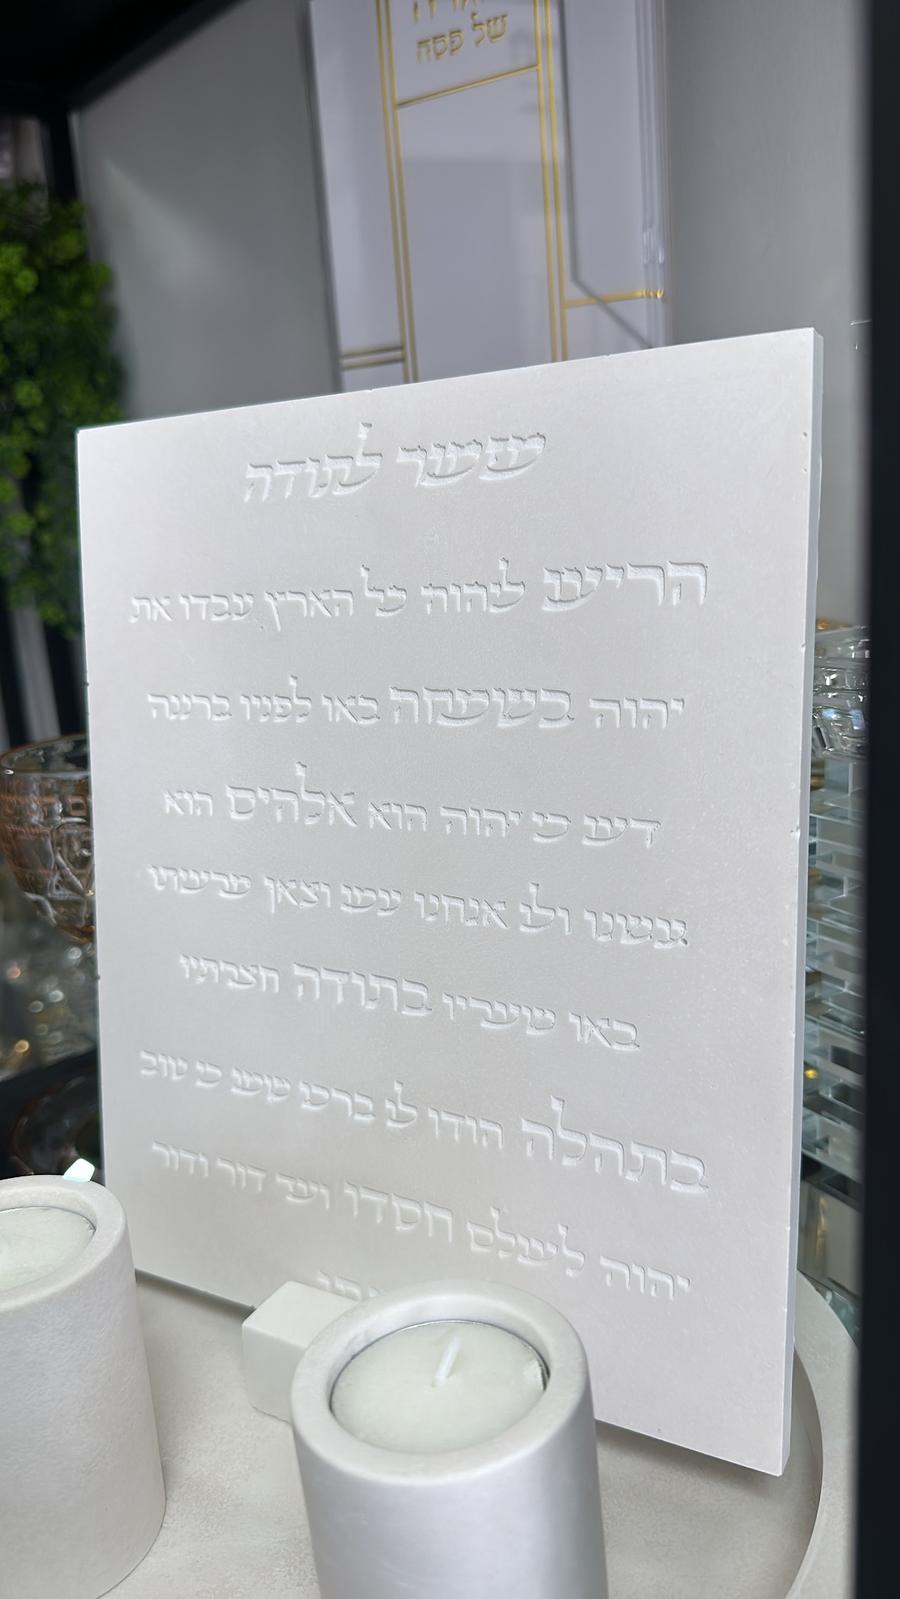 של פסח
מזמור לתודה
הריעו ליהוה כל הארץ עבדו את
יהוה בשמחה באו לפניו ברננה
דעו כי יהוה הוא אלהים הוא
עשנו ולו אנחנו עמו וצאן מרעיתו
באו שעריו בתודה חצרתיו
בתהלה הודו לו ברכו שמו כי טוב
יהוה לעולם חסדו ועד דור ודור